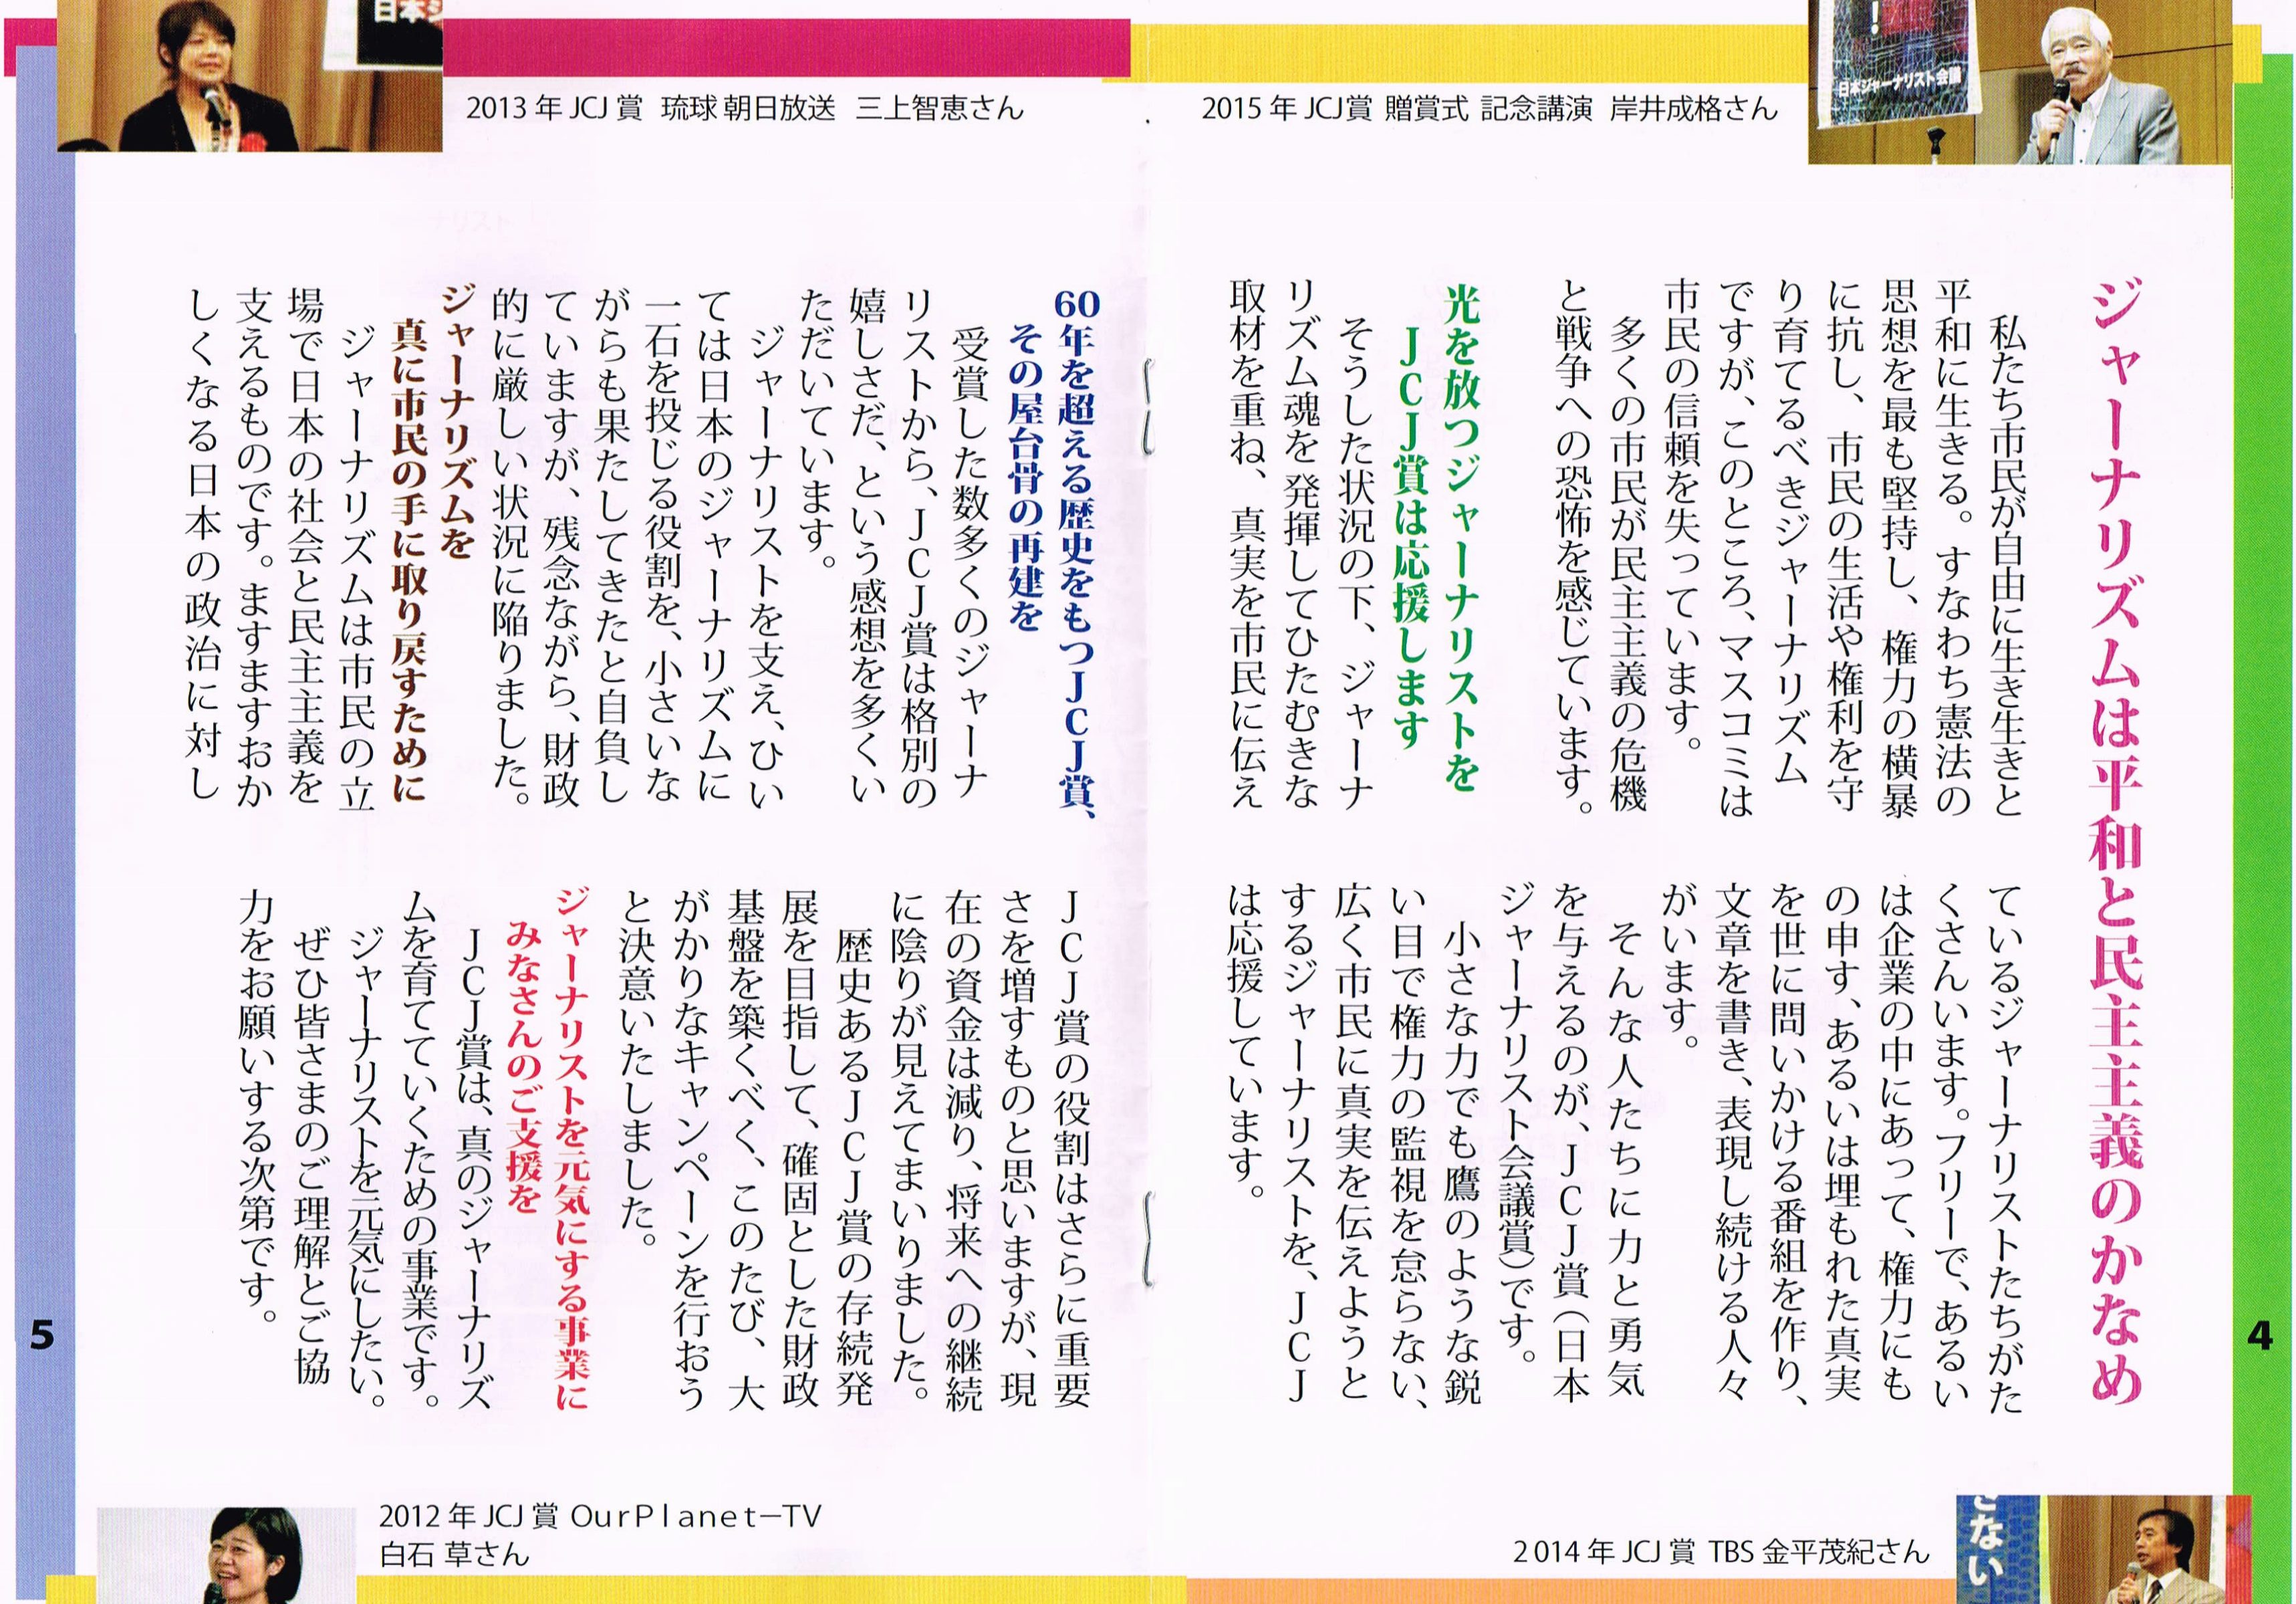 2015年JCJ賞 贈賞式 記念講演 岸井成格さん
！
日本ジャーナリスト会議
ジャーナリズムは平和と民主主義のかなめ
私たち市民が自由に生き生きと
平和に生きる。すなわち憲法の
思想を最も堅持し、権力の横暴
に抗し、市民の生活や権利を守
り育てるべきジャーナリズム
ですが、このところ、マスコミは
市民の信頼を失っています。
多くの市民が民主主義の危機
と戦争への恐怖を感じています。
光を放つジャーナリストを
JCJ賞は応援します
そうした状況の下、ジャーナ
リズム魂を発揮してひたむきな
取材を重ね、真実を市民に伝え
ているジャーナリストたちがた
くさんいます。フリーで、あるい
は企業の中にあって、権力にも
の申す、あるいは埋もれた真実
を世に問いかける番組を作り、
文章を書き、表現し続ける人々
がいます。
そんな人たちに力と勇気
を与えるのが、JCJ賞（日本
ジャーナリスト会議賞）です。
小さな力でも鷹のような鋭
い目で権力の監視を怠らない、
広く市民に真実を伝えようと
するジャーナリストを、JCJ
は応援しています。
2014年JCJ賞 TBS 金平茂紀さん
さない
4
日本ジ
2013年JCJ賞 琉球朝日放送 三上智恵さん
60年を超える歴史をもつJCJ賞、
その屋台骨の再建を
受賞した数多くのジャーナ
リストから、JCJ賞は格別の
嬉しさだ、という感想を多くい
ただいています。
ジャーナリストを支え、ひい
ては日本のジャーナリズムに
一石を投じる役割を、小さいな
がらも果たしてきたと自負し
ていますが、残念ながら、財政
的に厳しい状況に陥りました。
ジャーナリズムを
真に市民の手に取り戻すために
ジャーナリズムは市民の立
場で日本の社会と民主主義を
支えるものです。ますますおか
しくなる日本の政治に対し
JCJ賞の役割はさらに重要
さを増すものと思いますが、現
在の資金は減り、将来への継続
に陰りが見えてまいりました。
歴史あるJCJ賞の存続発
展を目指して、確固とした財政
基盤を築くべく、このたび、大
がかりなキャンペーンを行おう
と決意いたしました。
ジャーナリストを元気にする事業に
みなさんのご支援を
JCJ賞は、真のジャーナリズ
ムを育てていくための事業です。
ジャーナリストを元気にしたい。
ぜひ皆さまのご理解とご協
力をお願いする次第です。
2012年JCJ賞 OurPlanet－TV
白石 草さん
5